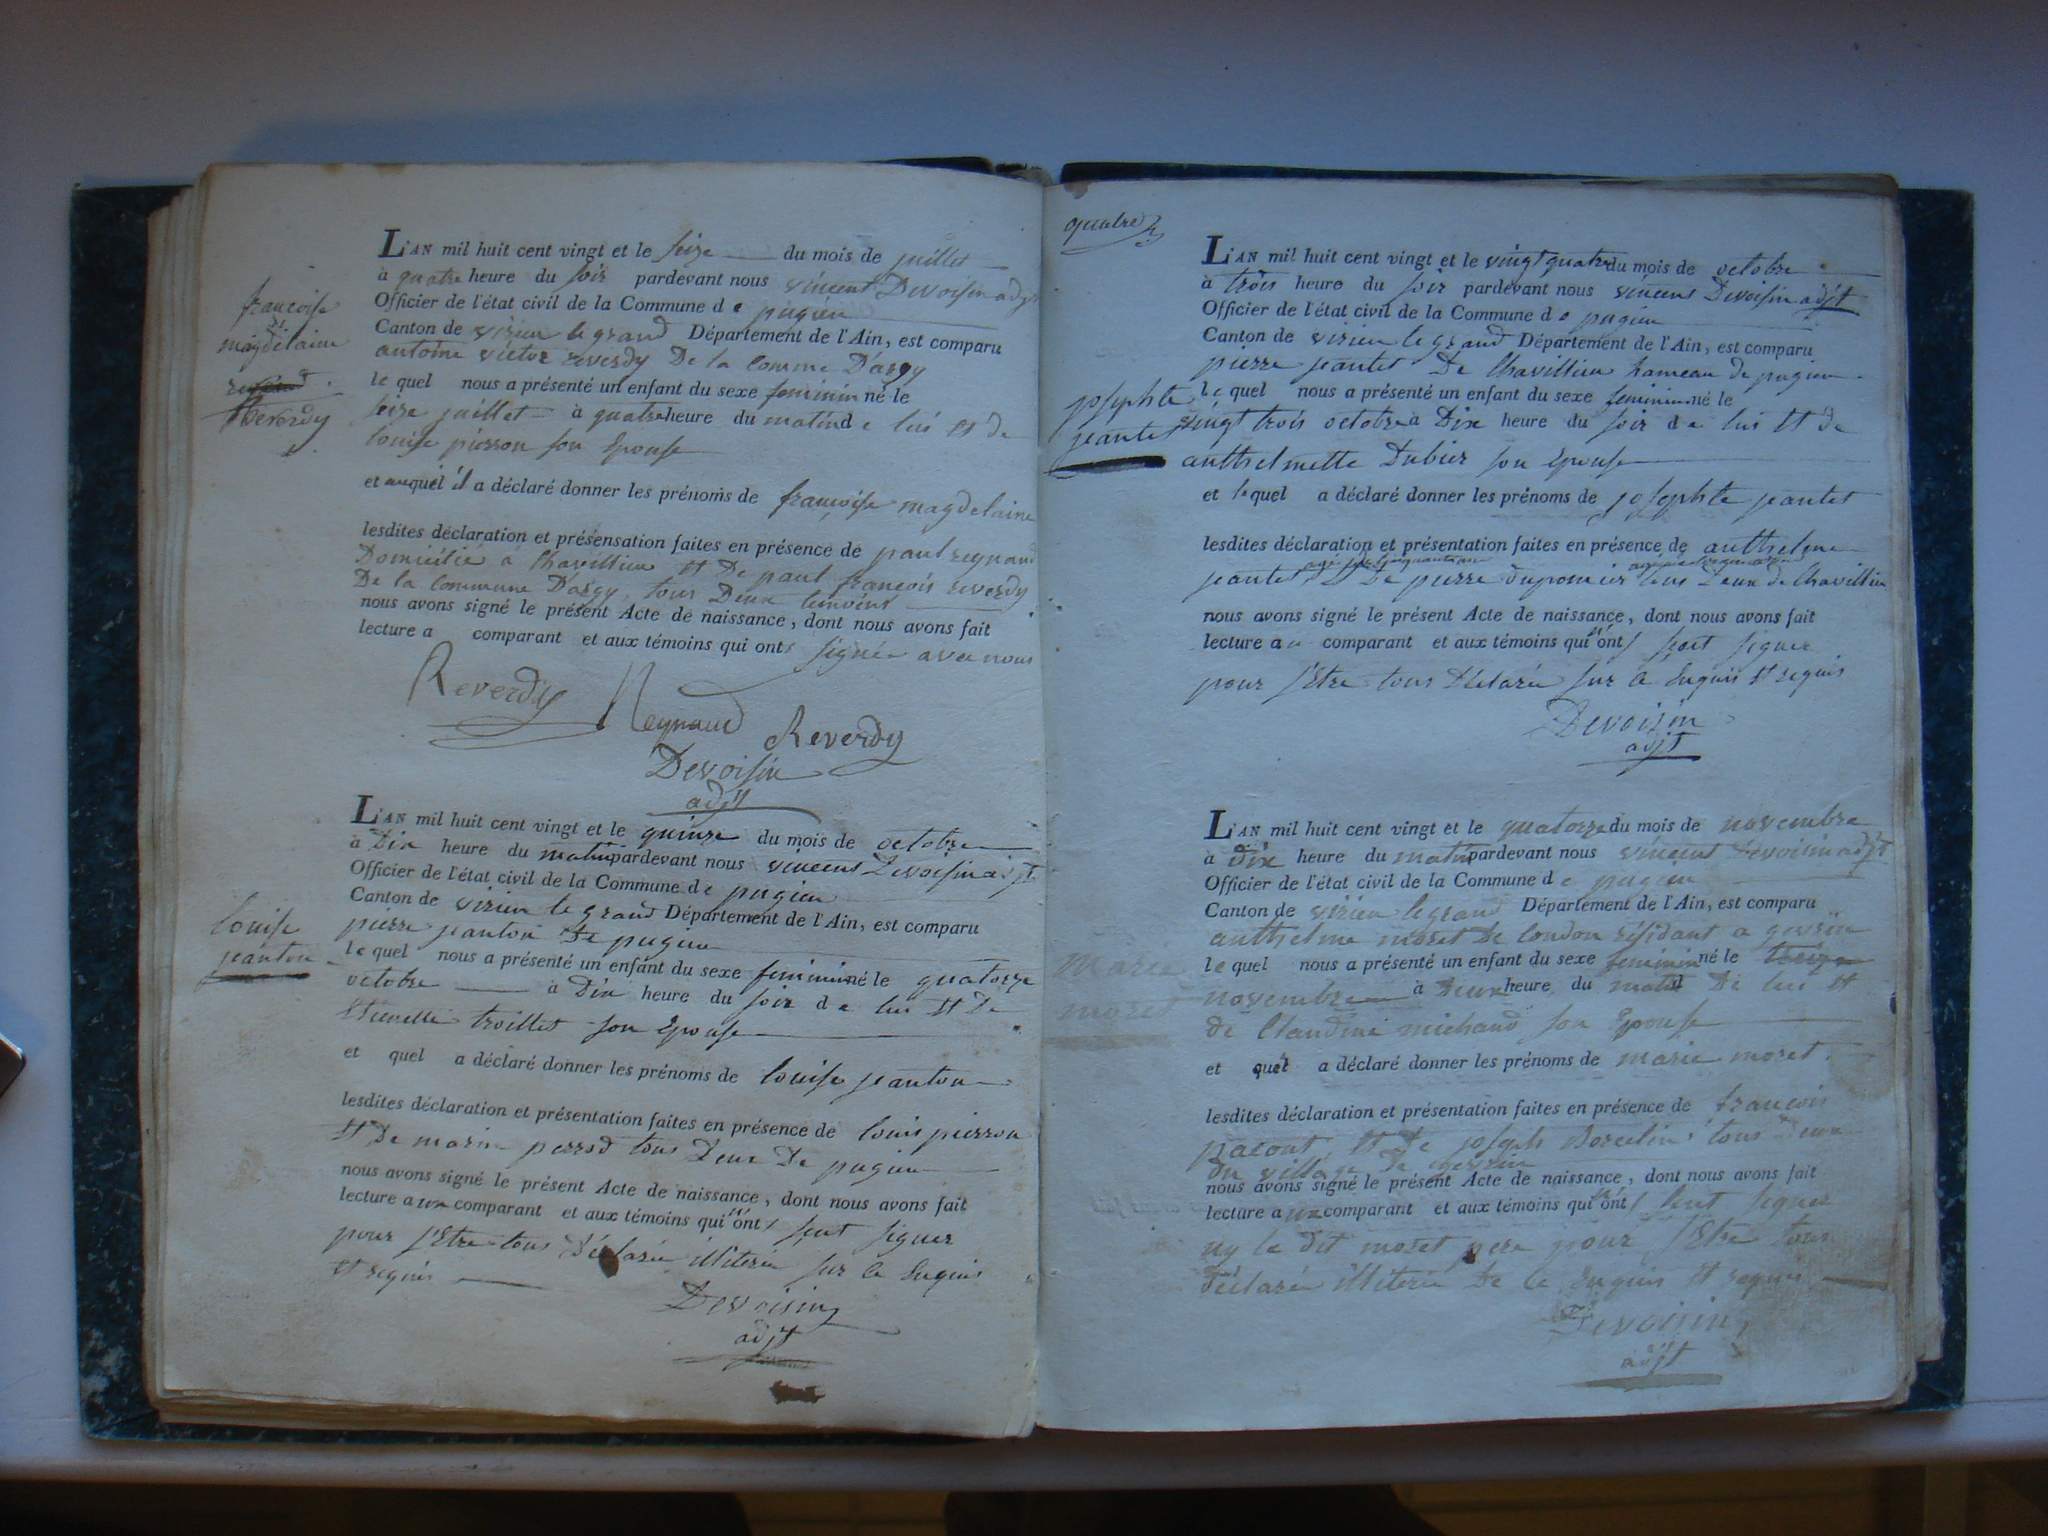 françoise
magdelaine
Reverdy
L'AN mil huit cent vingt et le seize du mois de juillet
à quatre heure du soir pardevant nous vincent Devoisin adjt
Officier de l'état civil de la Commune de pugieu
Canton de virieu le grand Département de l'Ain, est comparu
antoine victor reverdy De la Comme D'argy
le quel nous a présenté un enfant du sexe feminin né le
seize juillet à quatre heure du matin de lui et de
louise pierron son Epouse
et auquel il a déclaré donner les prénoms de françoise magdelaine
lesdites déclaration et présensation faites en présence de paul reynaud
Domicilié a Chavillieu et De paul françois reverdy
De la Commune D'argy, tous Deux temoins
nous avons signé le présent Acte de naissance, dont nous avons fait
lecture a comparant et aux témoins qui ont signée avec nous
Reverdy Reynaud Reverdy
Devoisin
adjt
louise
jeanton
L'AN mil huit cent vingt et le quinze du mois de octobre
à Dix heure du matin pardevant nous vincent Devoisin adjt
Officier de l'état civil de la Commune de pugieu
Canton de virieu le grand Département de l'Ain, est comparu
pierre jeanton De pugieu
le quel nous a présenté un enfant du sexe feminin né le quatorze
octobre à Dix heure du soir de lui et De
troillet son Epouse
et quel a déclaré donner les prénoms de louise jeanton
lesdites déclaration et présentation faites en présence de louis pierron
et De marin perrod tous Deux De pugieu
nous avons signé le présent Acte de naissance, dont nous avons fait
lecture aux comparant et aux témoins qui n'ont sçut signer
pour s'Etre tous Déclarée illiterée sur ce Enquis
et requis
Devoisin
adjt
quatre
josephte
jeantet
L'AN mil huit cent vingt et le vingt quatre du mois de octobre
à trois heure du soir pardevant nous vincent Devoisin adjt
Officier de l'état civil de la Commune de pugieu
Canton de virieu le grand Département de l'Ain, est comparu
pierre jeantet De Chavillieu hameau de pugieu
le quel nous a présenté un enfant du sexe feminin né le
vingt trois octobre à Dix heure du soir de lui et de
anthelmette Dubier son Epouse
et lequel a déclaré donner les prénoms de josephte jeantet
lesdites déclaration et présentation faites en présence de anthelme
jeantet et De pierre duponier tous Deux de Chavillieu
nous avons signé le présent Acte de naissance, dont nous avons fait
lecture au comparant et aux témoins qui n'ont sçut signer
pour s'Etre tous Déclarée sur ce Enquis et requis
Devoisin
adjt
marie
moret
L'AN mil huit cent vingt et le quatorze du mois de novembre
à dix heure du matin pardevant nous vincent Devoisin adjt
Officier de l'état civil de la Commune de pugieu
Canton de virieu le grand Département de l'Ain, est comparu
anthelme moret De London résidant a gevrin
le quel nous a présenté un enfant du sexe feminin né le treize
novembre à Deux heure du matin De lui et
de Claudine michaud son Epouse
et quel a déclaré donner les prénoms de marie moret.
lesdites déclaration et présentation faites en présence de françois
pacout et De joseph Borcelin tous Deux
du village de gevrin
nous avons signé le présent Acte de naissance, dont nous avons fait
lecture aux comparant et aux témoins qui n'ont sçut signer
ny le dit moret pere pour s'Etre tous
déclarée illiterée De ce Enquis et requis
Devoisin
adjt